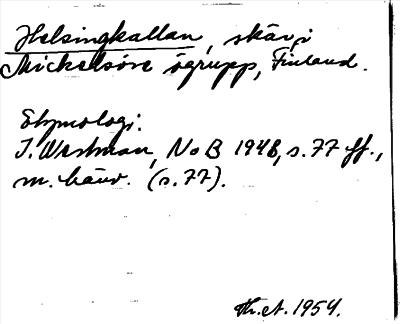 Helsingkallan, skär i
Mickelsörs ögrupp, Finland.
Etymologi:
I. Westman, NoB 1948, s. 77 ff.,
m. hänv. (s. 77).
Th. A. 1954.